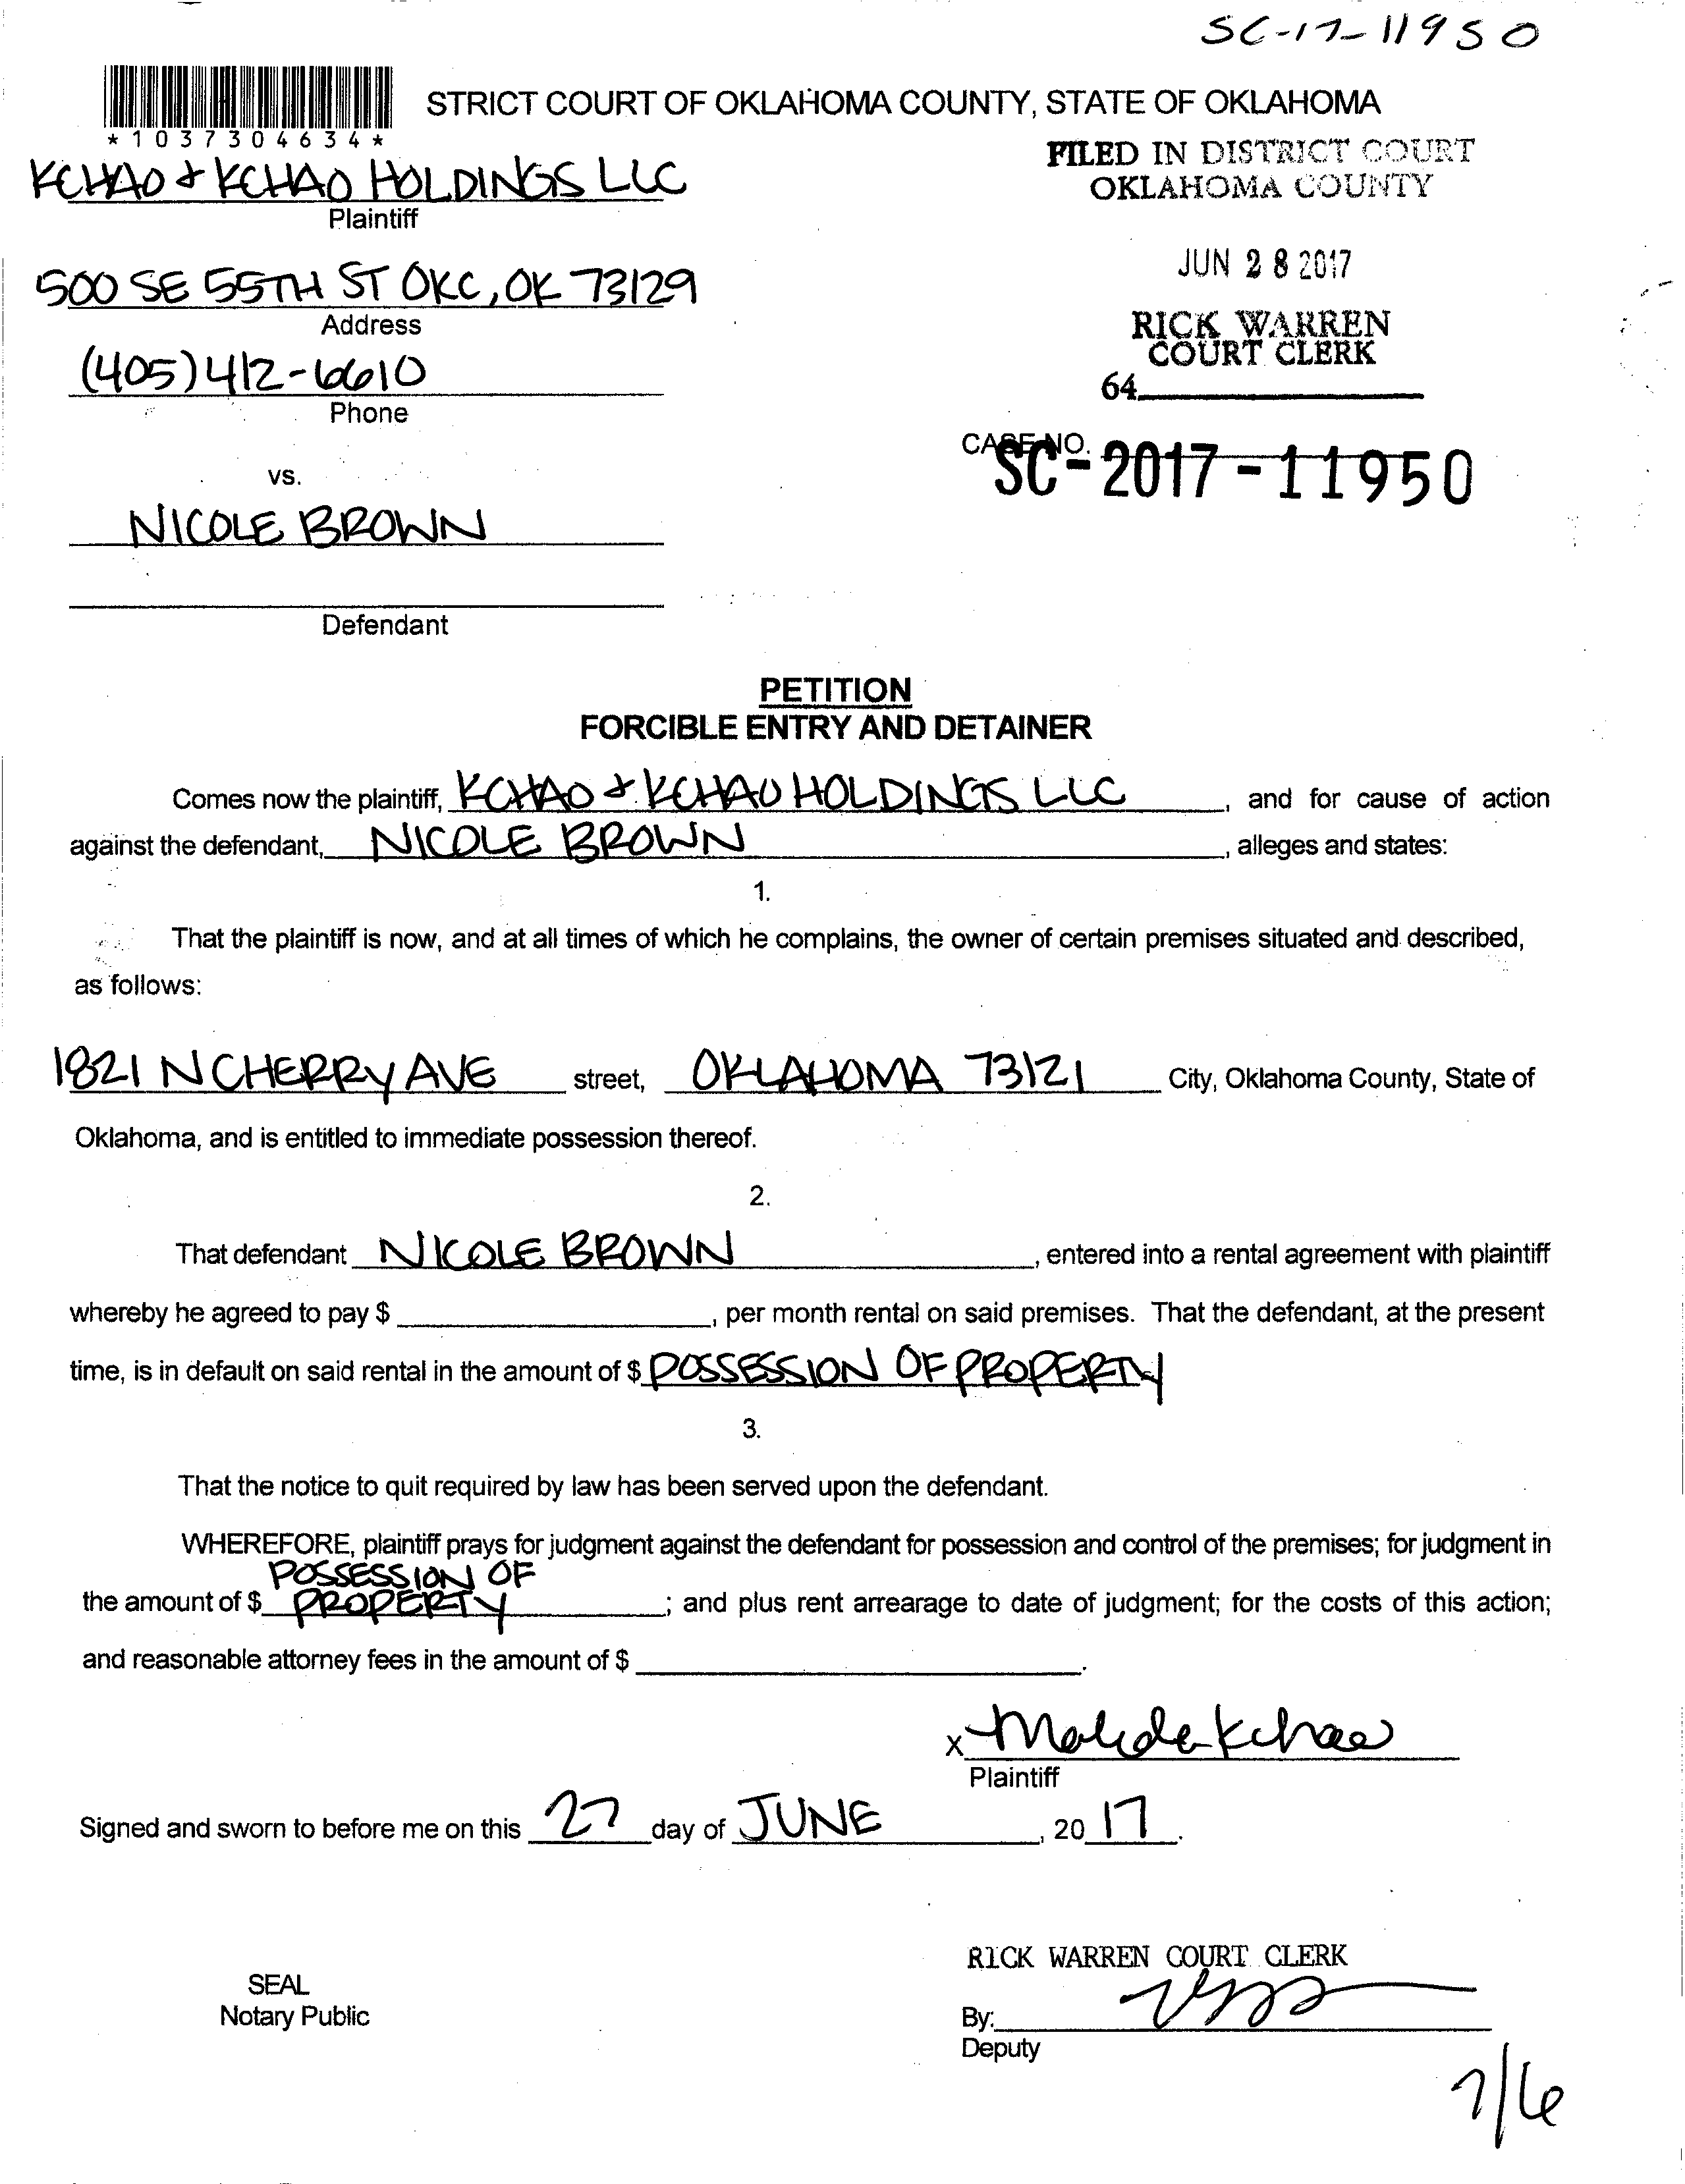 SC-17-11950
STRICT COURT OF OKLAHOMA COUNTY, STATE OF OKLAHOMA
*1037304634*
FILED IN DISTRICT COURT
OKLAHOMA COUNTY
KCHAO & KCHAO HOLDINGS LLC
Plaintiff
JUN 28 2017
500 SE 55TH ST OKC, OK 73129
Address
RICK WARREN
COURT CLERK
(405) 412-6610
64
Phone
CASE NO.
SC-2017-11950
vs.
NICOLE BROWN
Defendant
PETITION
FORCIBLE ENTRY AND DETAINER
Comes now the plaintiff, KCHAO & KCHAO HOLDINGS LLC, and for cause of action
against the defendant, NICOLE BROWN, alleges and states:
1.
That the plaintiff is now, and at all times of which he complains, the owner of certain premises situated and described,
as follows:
1821 N CHERRY AVE street, OKLAHOMA 73121 City, Oklahoma County, State of
Oklahoma, and is entitled to immediate possession thereof.
2.
That defendant NICOLE BROWN, entered into a rental agreement with plaintiff
whereby he agreed to pay $ , per month rental on said premises. That the defendant, at the present
time, is in default on said rental in the amount of $ POSSESSION OF PROPERTY
3.
That the notice to quit required by law has been served upon the defendant.
WHEREFORE, plaintiff prays for judgment against the defendant for possession and control of the premises; for judgment in
POSSESSION OF
the amount of $ PROPERTY; and plus rent arrearage to date of judgment; for the costs of this action;
and reasonable attorney fees in the amount of $ .
x Malida Kchao
Plaintiff
Signed and sworn to before me on this 27 day of JUNE, 20 17.
RICK WARREN COURT CLERK
SEAL
Notary Public
By:
Deputy
7/6